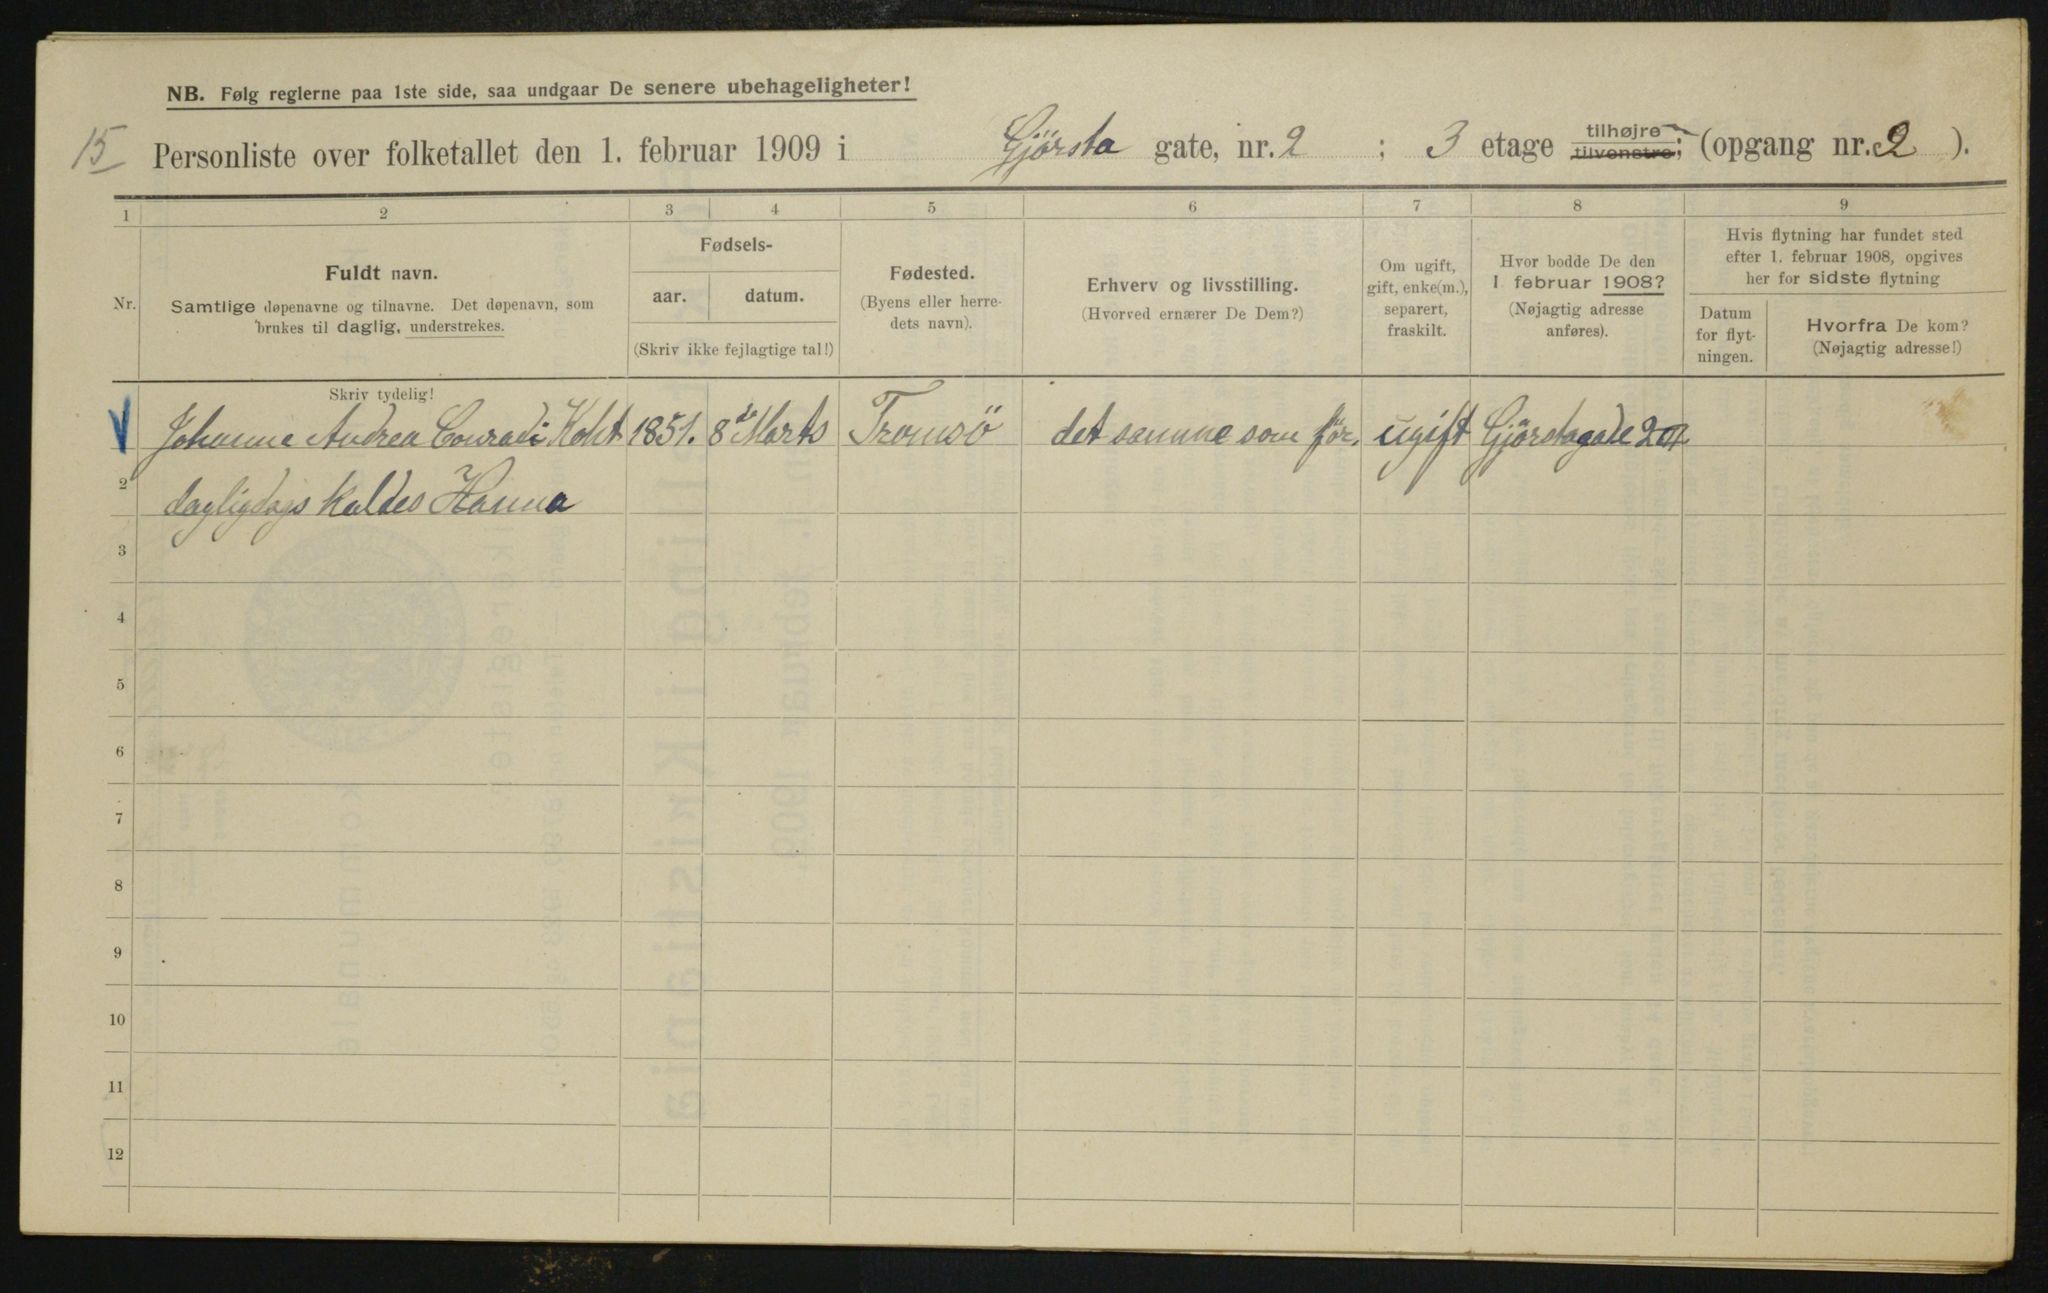 NB. Følg reglerne paa 1ste side, saa undgaar De senere ubehageligheter!
15 Personliste over folketallet den 1. februar 1909 i Gjørsta gate, nr. 2 ; 3 etage tilhøjre tilvenstre; (opgang nr. 2 ).
1 2 3 4 5 6 7 8 9
Nr.
Fuldt navn.
Samtlige døpenavne og tilnavne. Det døpenavn, som
brukes til daglig, understrekes.
Fødsels-
aar. datum.
(Skriv ikke fejlagtige tal!)
Fødested.
(Byens eller herre-
dets navn).
Erhverv og livsstilling.
(Hvorved ernærer De Dem?)
Om ugift,
gift, enke(m.),
separert,
fraskilt.
Hvor bodde De den
1 februar 1908?
(Nøjagtig adresse
anføres).
Hvis flytning har fundet sted
efter 1. februar 1908, opgives
her for sidste flytning
Datum
for flyt-
ningen.
Hvorfra De kom?
(Nøjagtig adresse!)
Skriv tydelig!
Johanne Andrea Conradi Koht 1851. 8de Marts Tromsö det samme som før. ugift Gjörstagade 2
2 dagligdags kaldes Hanna
3
4
5
6
7
8
9
10
11
12